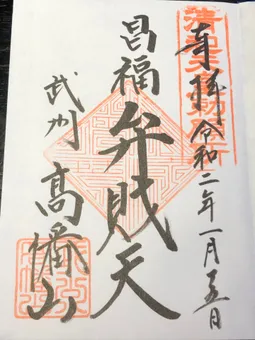 奉拝 令和二年一月十五日
昌福 弁財天
武州 高幡山